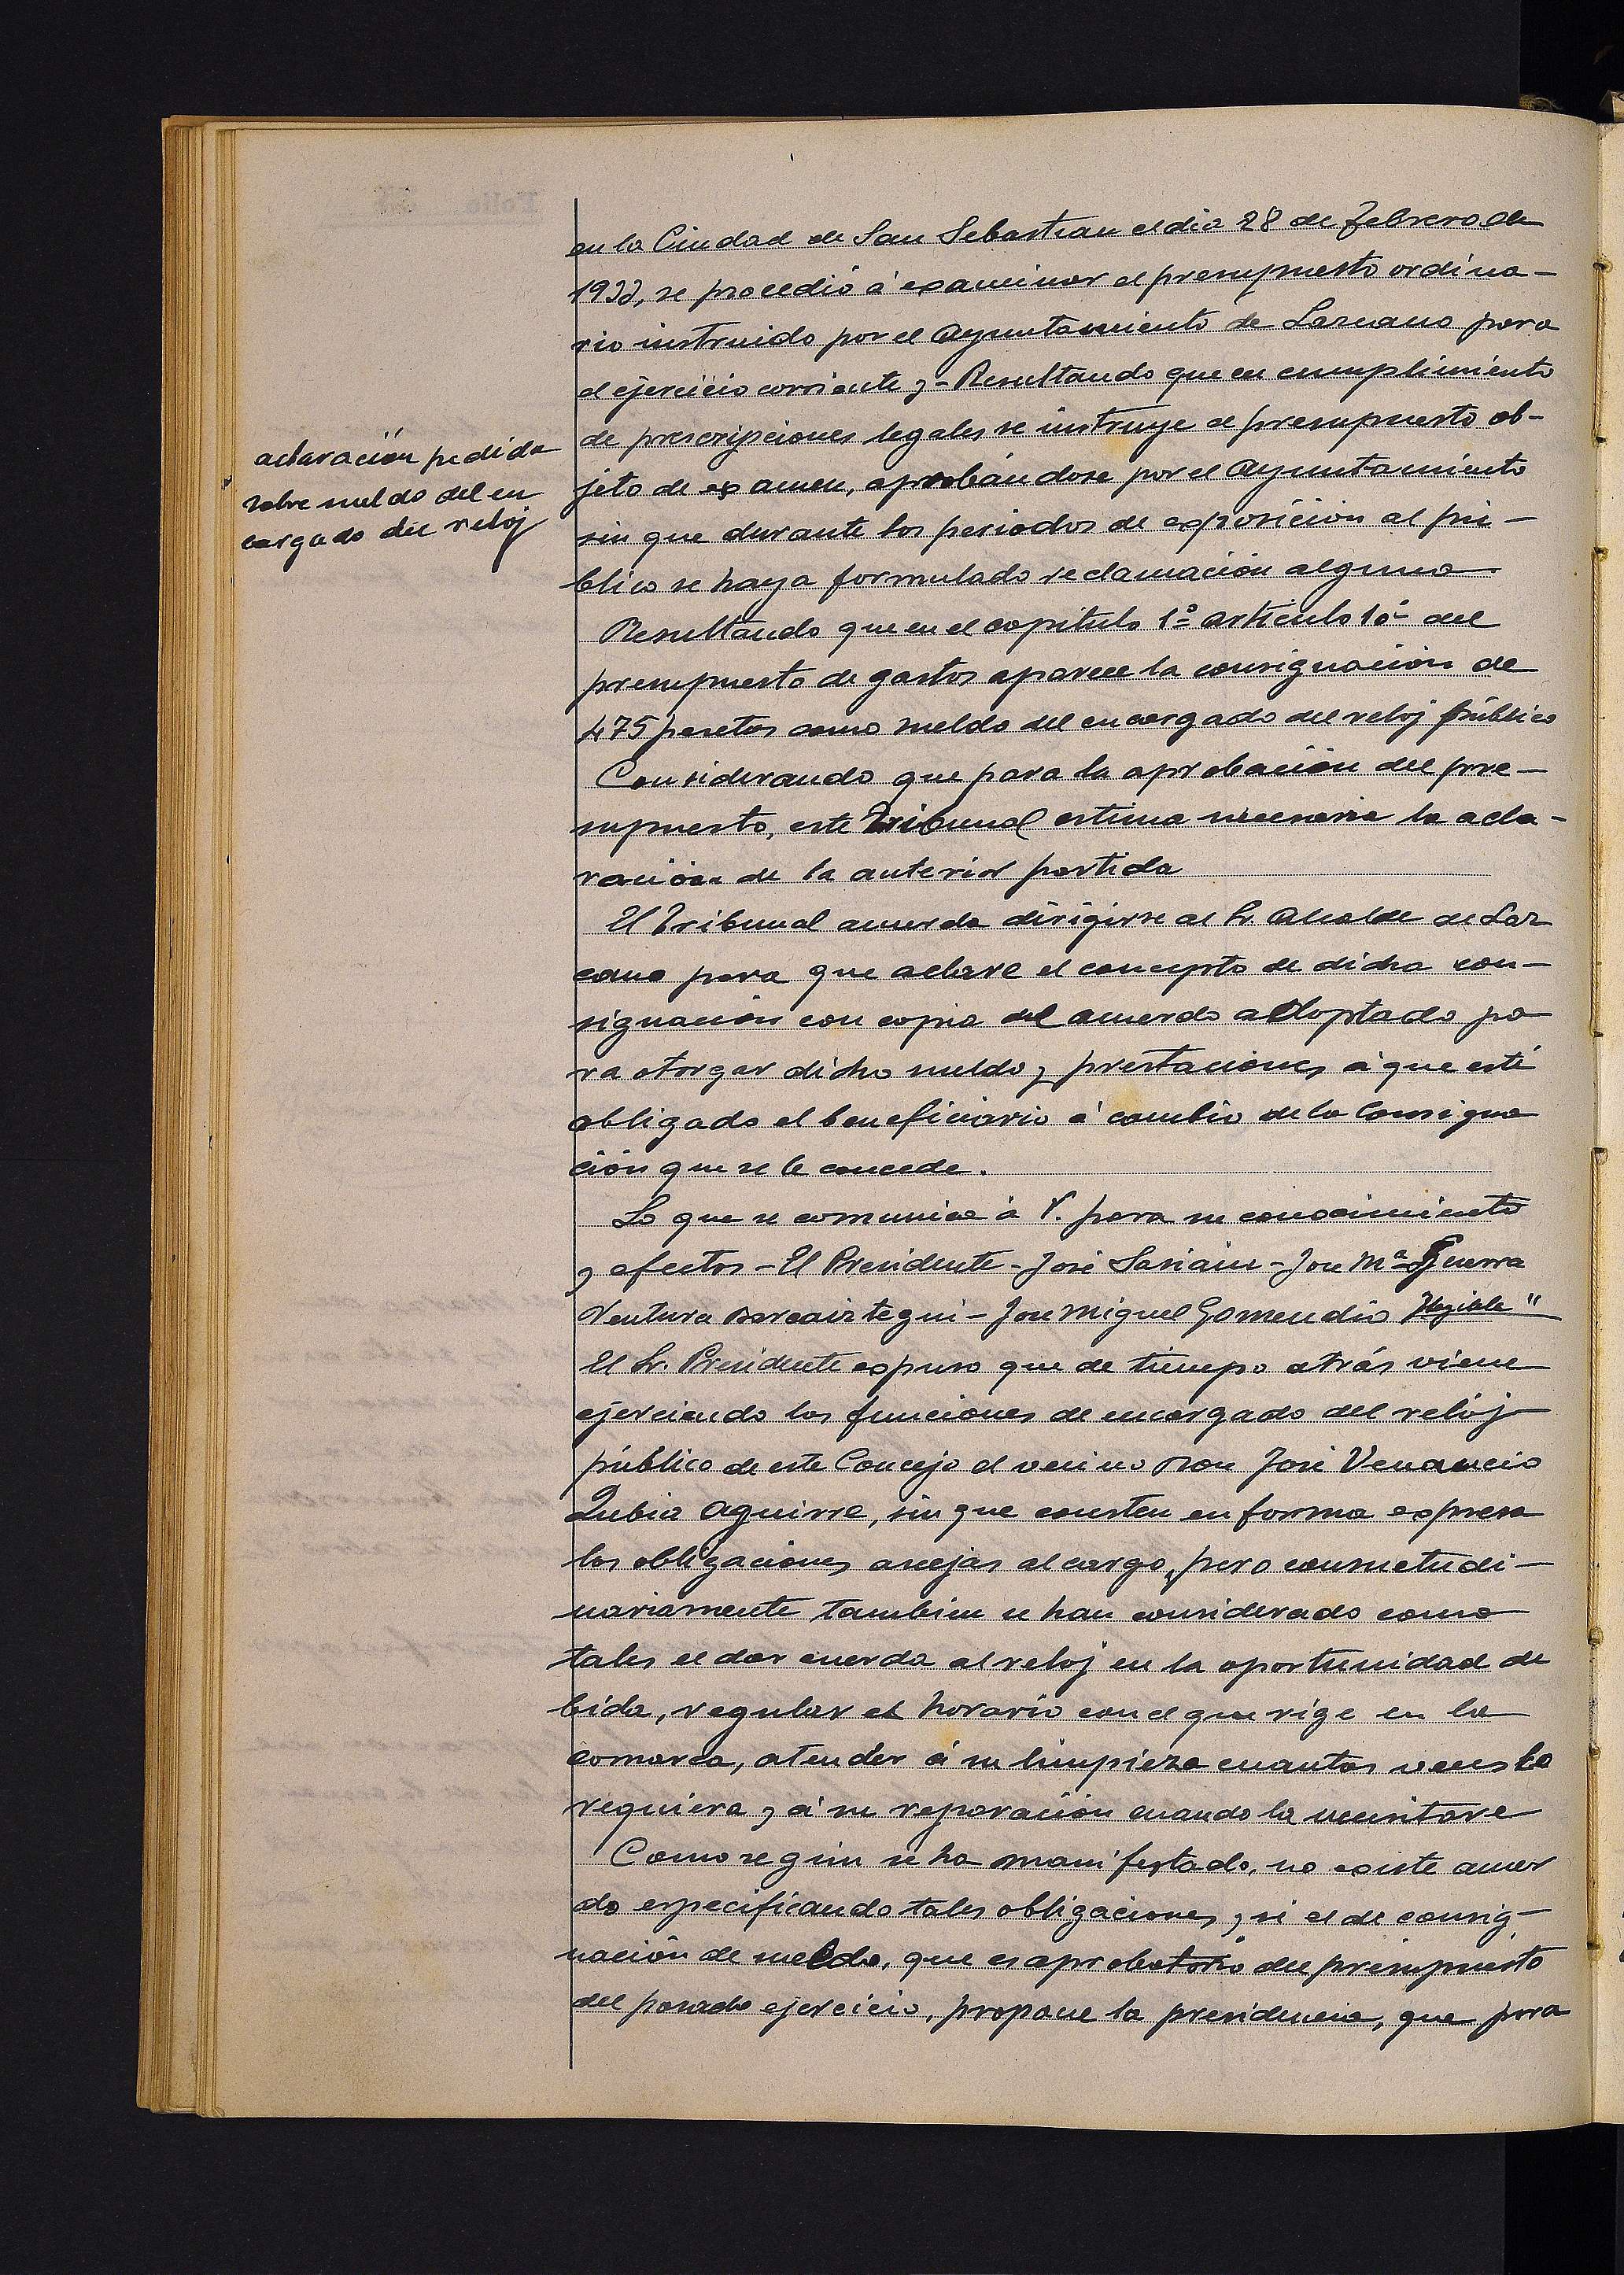 en la Ciudad de San Sebastian el dia 28 de Febrero de
1933, se procedió á examinar el presupuesto ordina-
rio instruido por el Ayuntamiento de Lazcano para
el ejercicio corriente y - Resultando que en cumplimiento
de prescripciones legales se instruye el presupuesto ob-
aclaración pedida
sobre sueldo del en
cargado del reloj
jeto de examen, aprobándose por el Ayuntamiento
sin que durante los periodos de exposición al pú-
blico se haya formulado reclamación alguna
Resultando que en el capitulo 1º artículo 10º del
presupuesto de gastos aparece la consignación de
475 pesetas como sueldo del encargado del reloj público
Considerando que para la aprobación del pre-
supuesto, este Tribunal estima necesaria la acla-
ración de la anterior partida
El Tribunal acuerda dirigirse al Sr. Alcalde de Laz
cano para que aclare el concepto de dicha con-
signación con copia del acuerdo adoptado pa
ra otorgar dicho sueldo y prestaciones á que esté
obligado el beneficiario á cambio de la consigna
ción que se le concede.
Lo que se comunica á V. para su conocimiento
y efectos - El Presidente - José Sasiain - José Mª Guerra
Ventura Barcaiztegui - José Miguel Gomendio Ilegible"
El Sr. Presidente expuso que de tiempo atrás viene
ejerciendo las funciones de encargado del reloj
público de este Concejo el vecino Don José Venancio
Zubia Aguirre, sin que consten en forma expresa
las obligaciones anejas al cargo, pero consuetudi-
nariamente tambien se han considerado como
tales el dar cuerda al reloj en la oportunidad de
bida, regular el horario con el que rige en la
comarca, atender á su limpieza cuantas veces lo
requiera y á su reparación cuando la necesitare
Como según se ha manifestado, no existe acuer
do especificando tales obligaciones y si el de consig-
nación de sueldo, que es aprobatorio del presupuesto
del pasado ejercicio, propone la presidencia, que para